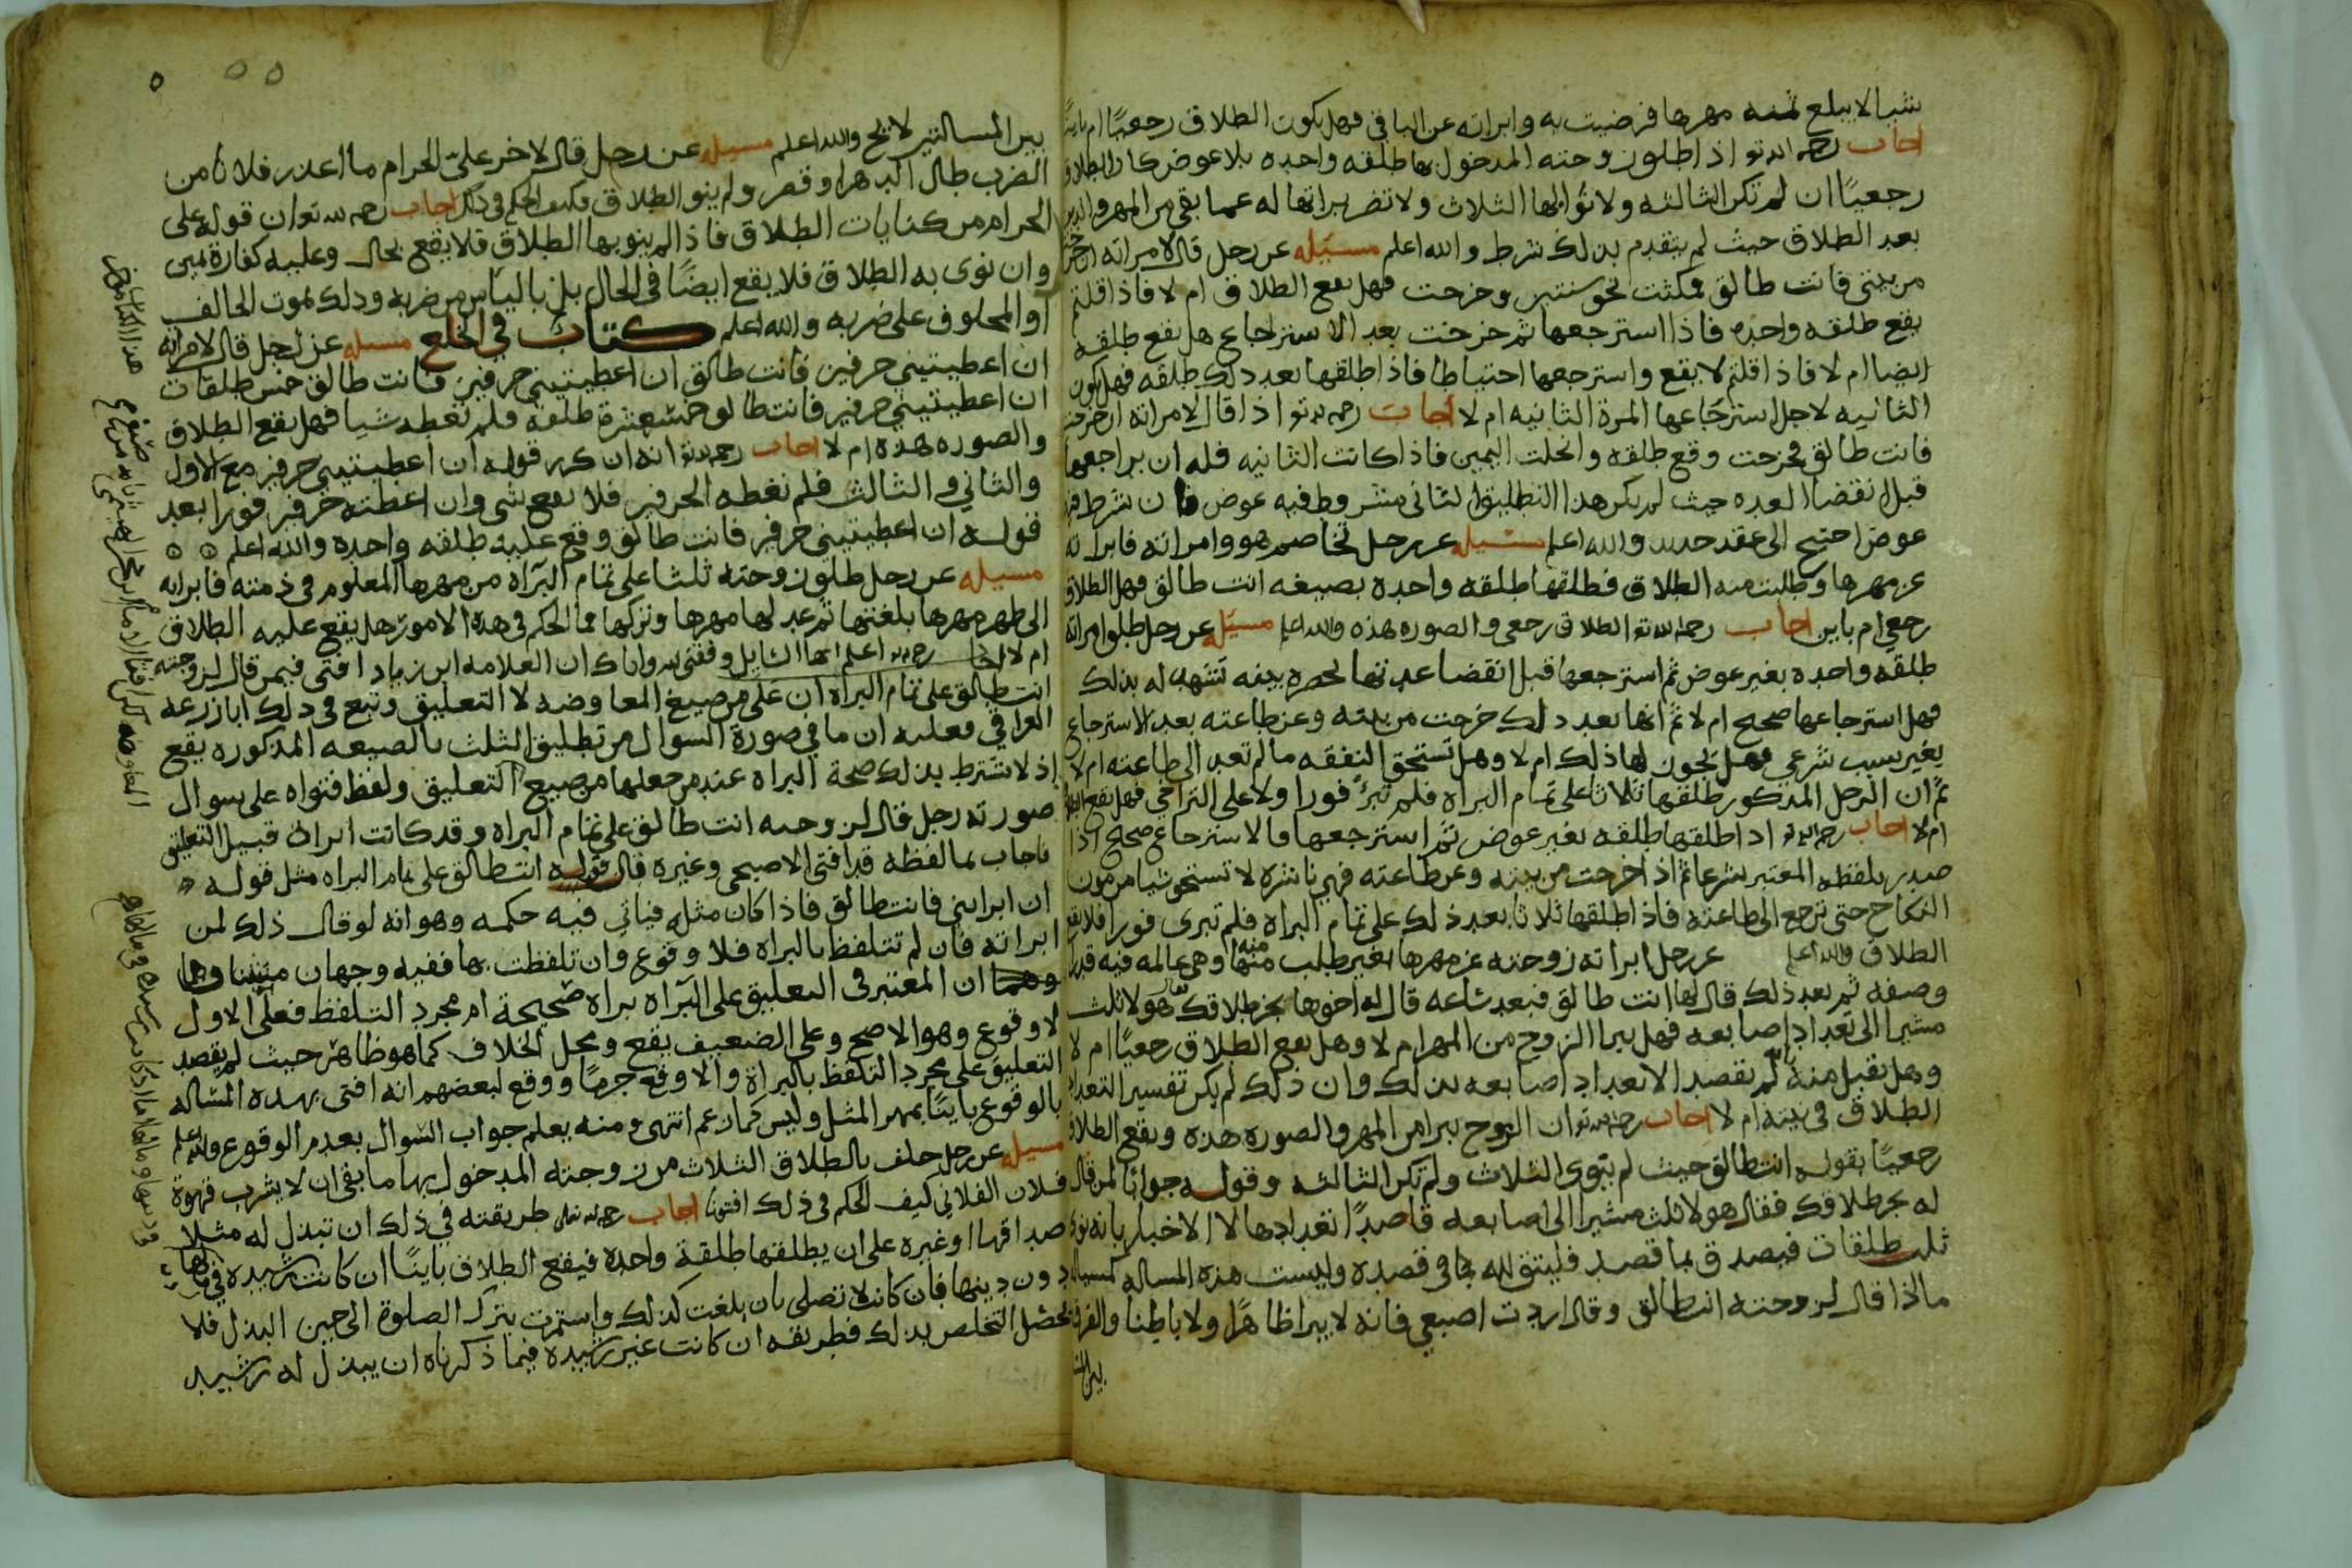 شيا لا يبلغ ثمنه مهرها فرضيت به وابراته عن الباقي فهل يكون الطلاق رجعيًا ام باينًا
اجاب رحمه الله تع اذا طلق زوجته المدخول بها طلقه واحده بلا عوض كان الطلاق
رجعيًا ان لم تكن الثالثه ولا نوا بها الثلاث ولا تضر براتها له عما بقي من المهر والدين
بعد الطلاق حيث لم يتقدم بذلك شرط والله اعلم مسيله عن رجل قال لامراته ان خرجتي
من بيتي فانت طالق فمكثت نحو سنتين وخرجت فهل يقع الطلاق ام لا فاذا قلتم
يقع طلقه واحده فاذا استرجعها ثم خرجت بعد الاسترجاع هل يقع طلقه
ايضا ام لا فاذا قلتم لا يقع واسترجعها احتياطا فاذا طلقها بعد ذلك طلقه فهل يكون
الثانيه لاجل استرجاعها المرة الثانيه ام لا اجاب رحمه الله تع اذا قال لامراته ان خرجت
فانت طالق فخرجت وقع طلقه وانحلت اليمين فاذا كانت الثانيه فله ان يراجعها
قبل انقضا العده حيث لم يكن هذا التطليق الثاني مشروط فيه عوض فان شرط فيه
عوض احتيج الى عقد جديد والله اعلم مسيله عن رجل تخاصم هو وامراته فابراته
عن مهرها وطلبت منه الطلاق فطلقها طلقه واحده بصيغه انت طالق فهل الطلاق
رجعي ام باين اجاب رحمه الله تع الطلاق رجعي والصوره هذه والله اعلم مسيله عن رجل طلق امراته
طلقه واحده بغير عوض ثم استرجعها قبل انقضا عدتها بحضره بينه تشهد له بذلك
فهل استرجاعها صحيح ام لا ثم انها بعد ذلك خرجت من بيته وعن طاعته بعد الاسترجاع
بغير سبب شرعي فهل يجوز لها ذلك ام لا وهل تستحق النفقه ما لم تعد الى طاعته ام لا
ثم ان الرجل المذكور طلقها ثلاثا على تمام البراه فلم تبرئ فورا ولا على التراخي فهل يقع الطلاق
ام لا اجاب رحمه الله تع اذا طلقها طلقه بغير عوض ثم استرجعها فالاسترجاع صحيح اذا
صدر بلفظه المعتبر شرعا ثم اذا خرجت من بيته وعن طاعته فهي ناشزه لا تستحق شيا من مون
النكاح حتى ترجع الى طاعته فاذا طلقها ثلاثا بعد ذلك على تمام البراه فلم تبرى فورا فلا يقع
الطلاق والله اعلم عن رجل ابراته زوجته عن مهرها بغير طلب منه لها وهي عالمه فيه قدرا
وصفه ثم بعد ذلك قال لها انت طالق فبعد ساعه قال له اخوها نجز طلاقك فقال هولا ثلث
مشيرا الى تعداد اصابعه فهل يبرا الزوج من المهر ام لا وهل يقع الطلاق رجعيًا ام لا
وهل يقبل منه انه لم يقصد الا تعداد اصابعه بذلك وان ذلك لم يكن تفسير التعداد
الطلاق في نيته ام لا اجاب رحمه الله تع ان الزوج يبرا من المهر والصوره هذه ويقع الطلاق
رجعيًا بقوله انت طالق حيث لم ينوي الثلاث ولم تكن الثالثه وقوله جوابًا لمن قال
له نجز طلاقك فقال هولا ثلث مشيرا الى اصابعه قاصدًا تعدادها لا الاخبار بانه نوى
ثلث طلقات فيصدق بما قصد فليتق الله بما في قصده وليست هذه المساله كمساله
ما اذا قال لزوجته انت طالق وقال اردت اصبعي فانه لا يبرا ظاهرًا ولا باطنا والفرق
بين المس
بين المسالتين لايح والله اعلم مسيله عن رجل قال لاخر علي الحرام ما اعذر فلانا من
الضرب طال الدهر او قصر ولم ينو الطلاق فكيف الحكم في ذلك اجاب رحمه الله تع ان قوله علي
الحرام من كنايات الطلاق فاذا لم ينو بها الطلاق فلا يقع بحال وعليه كفارة يمين
وان نوى به الطلاق فلا يقع ايضًا في الحال بل بالياس من ضربه وذلك بموت الحالف
او المحلوف على ضربه والله اعلم كتاب في الخلع مسيله عن رجل قال لامراته
ان اعطيتيني حرفين فانت طالق ان اعطيتيني حرفين فانت طالق خمس طلقات
ان اعطيتيني حرفين فانت طالق خمسعشرة طلقه فلم تعطه شيا فهل يقع الطلاق
والصوره هذه ام لا اجاب رحمه الله تع انه ان كرر قوله ان اعطيتيني حرفين مع الاول
والثاني والثالث فلم تعطه الحرفين فلا يقع شي وان اعطته حرفين فورا بعد
قوله ان اعطيتيني حرفين فانت طالق وقع عليه طلقه واحده والله اعلم
مسيله عن رجل طلق زوجته ثلثا على تمام البرآه من مهرها المعلوم في ذمته فابراته
الى ظهر مهرها بلغتها ثم عد لها مهرها وتركها فما الحكم في هذه الامور هل يقع عليه الطلاق
ام لا اجاب رحمه الله اعلم ايها السايل وفقني الله واياك ان العلامه ابن زياد افتى فيمن قال لزوجته
انت طالق على تمام البراه ان على من صيغ المعاوضه لا التعليق وتبع في ذلك ابا زرعه
العراقي فعليه ان ما في صورة السوال من تطليق الثلث بالصيغه المذكوره يقع
اذ لا يشترط بذلك صحة البراه عند من جعلها من صيغ التعليق ولفظ فتواه على سوال
صورته رجل قال لزوجته انت طالق على تمام البراه وقد كانت ابراته قبيل التعليق
فاجاب بما لفظه قد افتى الاصبحي وغيره قال قوله انت طالق على تمام البراه مثل قوله
ان ابراتيني فانت طالق فاذا كان مثله فياتي فيه حكمه وهو انه لو قال ذلك لمن
ابراته فان لم تتلفظ بالبراه فلا وقوع وان تلفظت بها ففيه وجهان
وهما ان المعتبر في التعليق على البرآه براه صحيحة ام مجرد التلفظ فعلى الاول
لا وقوع وهو الاصح وعلى الضعيف يقع ومحل الخلاف كما هو ظاهر حيث لم يقصد
التعليق على مجرد التلفظ بالبراة والا وقع جزمًا ووقع لبعضهم انه افتى بهذه المساله
بالوقوع باينًا بمهر المثل وليس كما زعم انتهى ومنه يعلم جواب السوال بعدم الوقوع والله اعلم
مسيله عن رجل حلف بالطلاق الثلاث من زوجته المدخول بها ما بقي ان لا يشرب قهوة
فلان الفلاني كيف الحكم في ذلك افتونا اجاب رحمه الله تعالى طريقته في ذلك ان تبذل له مثلا
صداقها او غيره على ان يطلقها طلقة واحده فيقع الطلاق باينًا ان كانت رشيده في مالها
دون دينها فان كانت لا تصلي بان بلغت كذلك واستمرت بترك الصلوة الى حين البذل فلا
يحصل التخلص بذلك فطريقه ان كانت غير رشيده فيما ذكرناه ان يبذل له رشيد